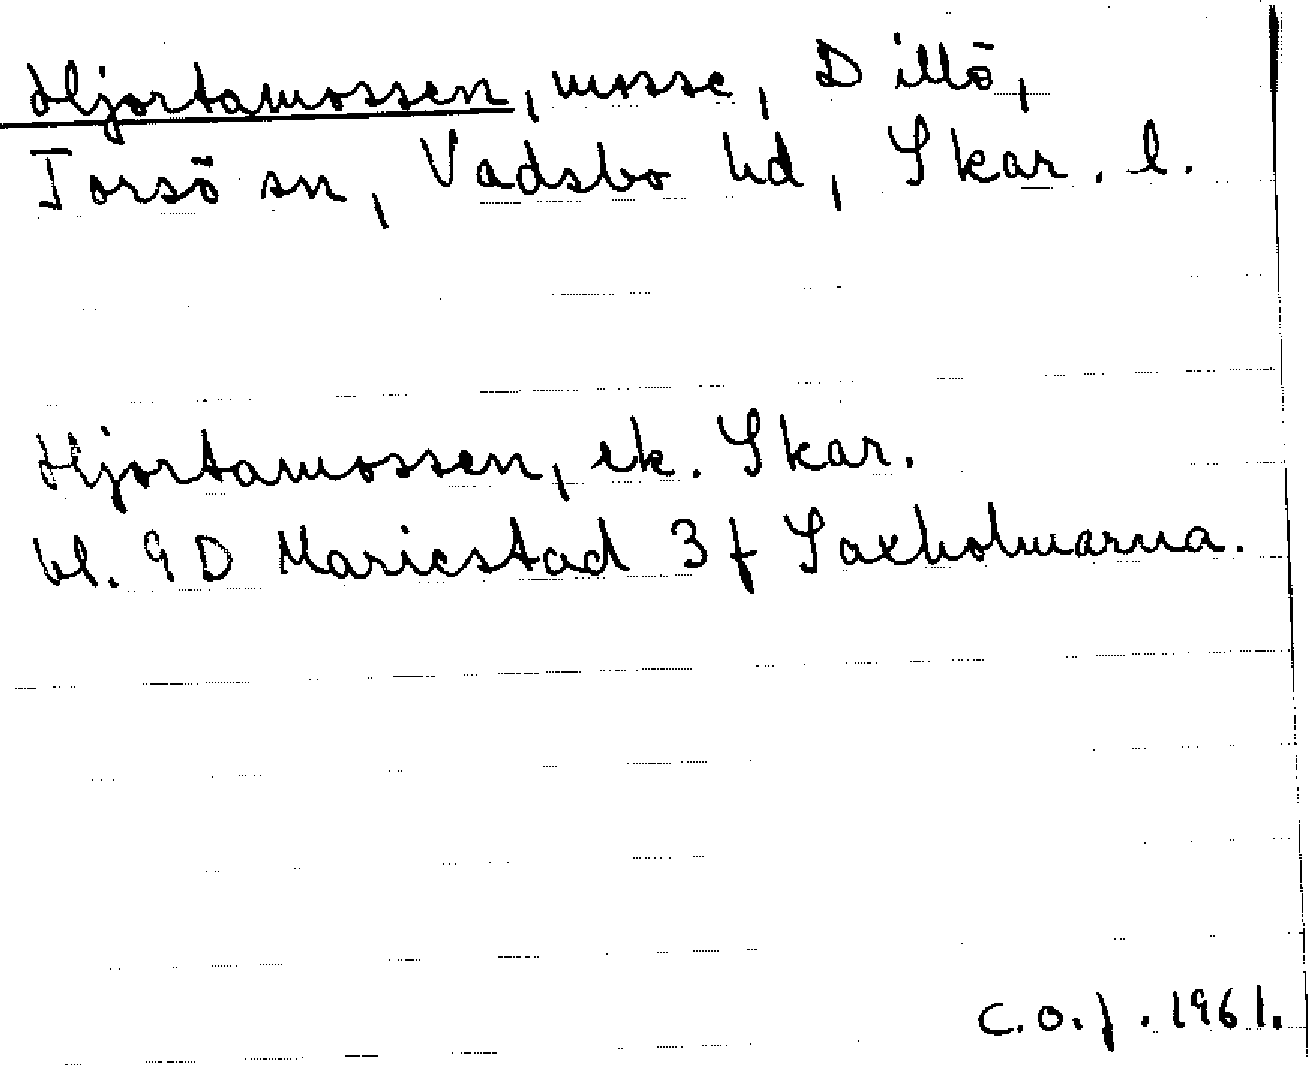 Hjortamossen, mosse, Dillö,
Torsö sn, Vadsbo hd, Skar. l.
Hjortamossen, ek. Skar.
bl. 9 D Mariestad 3 f Saxholmarna.
C.O.f. 1961.